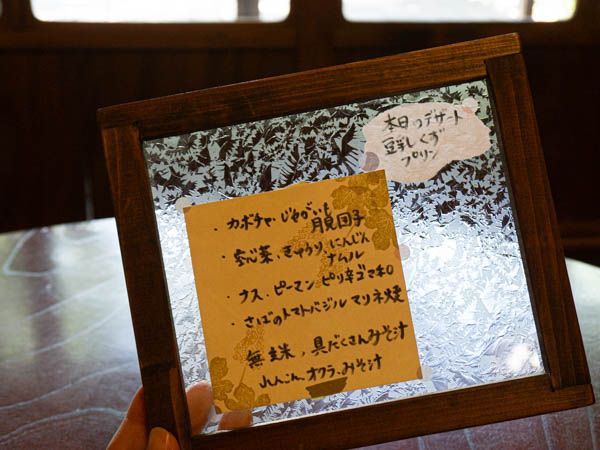 本日のデザート
豆乳くず
プリン
・カボチャ・じゃがいも
月見団子
・空心菜、きゅうり、にんじん
ナムル
・ナス・ピーマンピリ辛ゴマキロ
・さばのトマトバジルマリネ焼
無玄米、具だくさんみそ汁
れんこん、オクラ、みそ汁